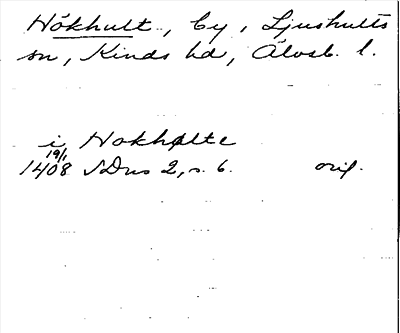 Hökhult, by, Ljushults
sn, Kinds hd, Älvsb. l.
i Hokhalte
19/1
1408 SDns 2, s. 6. orig.